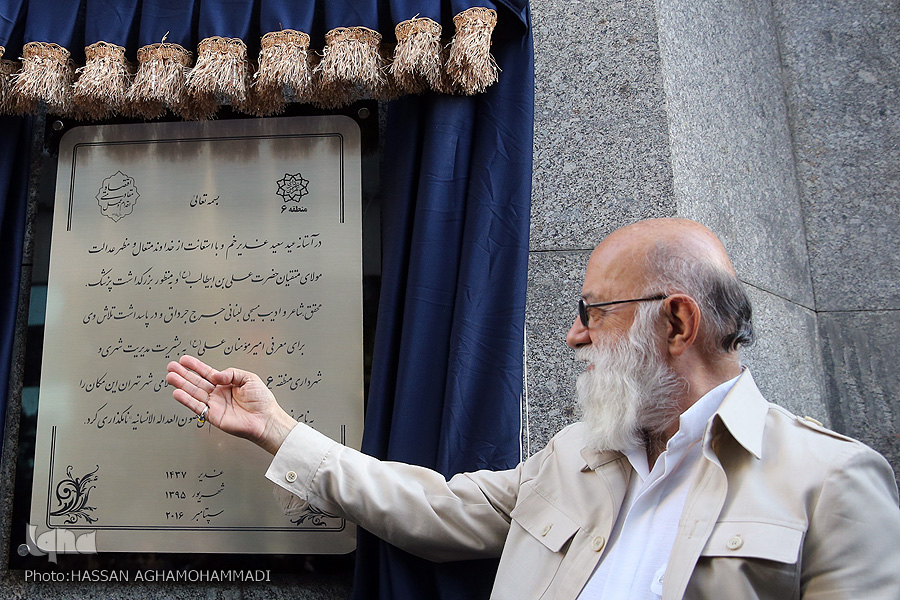 بسمه تعالی
منطقه ۶
در آستانه عید سعید غدیر خم و با استعانت از خداوند متعال و مظهر عدالت
مولای متقیان حضرت علی بن ابیطالب (ع) و به منظور بزرگداشت پزشک،
محقق، شاعر و ادیب مسیحی لبنانی جرج جرداق و در پاسداشت تلاش وی
برای معرفی امیرمؤمنان علی (ع) به بشریت مدیریت شهری و
شهرداری منطقه ۶ شهر تهران این مکان را
به نام صوت العداله الانسانیه" نامگذاری کرد.
غدیر ۱۴۳۷
شهریور ۱۳۹۵
سپتامبر ۲۰۱۶
iqna
Photo:HASSAN AGHAMOHAMMADI